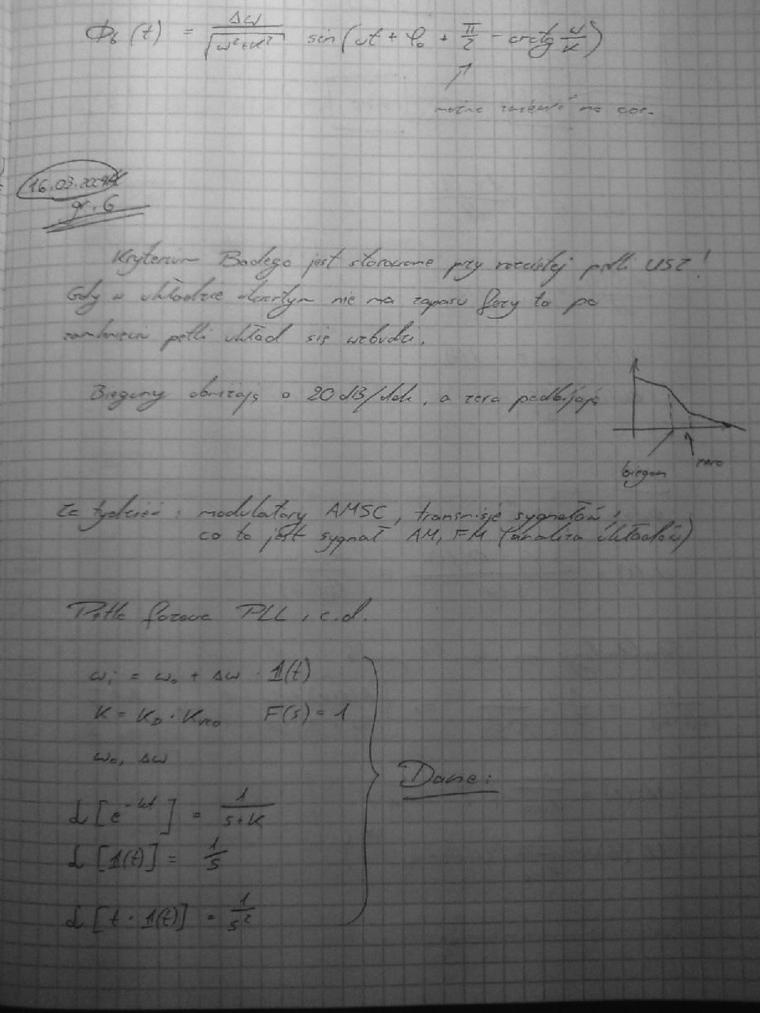 Φ_b(t) = Δω/√(ω²+K²) sin(ωt + φ₀ + π/2 − arctg ω/K)
można zamienić na cos.
16.03.
gr. 6
Kryterium Bodego jest stosowane przy rozciętej pętli USZ!
Gdy w układzie otwartym nie ma zapasu fazy to po
zamknięciu pętli układ się wzbudzi.
Bieguny obniżają o 20 dB/dek, a zera podbijają
biegun
zero
Za tydzień: modulatory AMSC, transmisje sygnałów,
co to jest sygnał AM, FM (analiza układów)
Pętla fazowa PLL, c.d.
ωᵢ = ω₀ + Δω · 1(t)
K = K_D · K_VCO F(s) = 1
ω₀, Δω
Dane:
ℒ[e^(-kt)] = 1/(s+K)
ℒ[1(t)] = 1/s
ℒ[t · 1(t)] = 1/s²